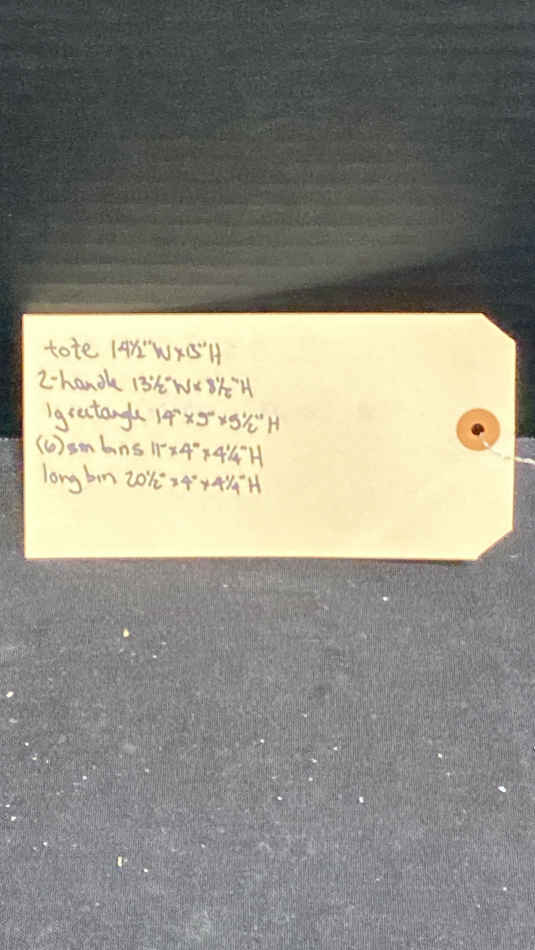 tote 14½" W x 13" H
2-handle 13½" W x 8½" H
lg rectangle 14" x 9" x 5½" H
(6) sm bins 11" x 4" x 4¼" H
long bin 20½" x 4" x 4¼" H